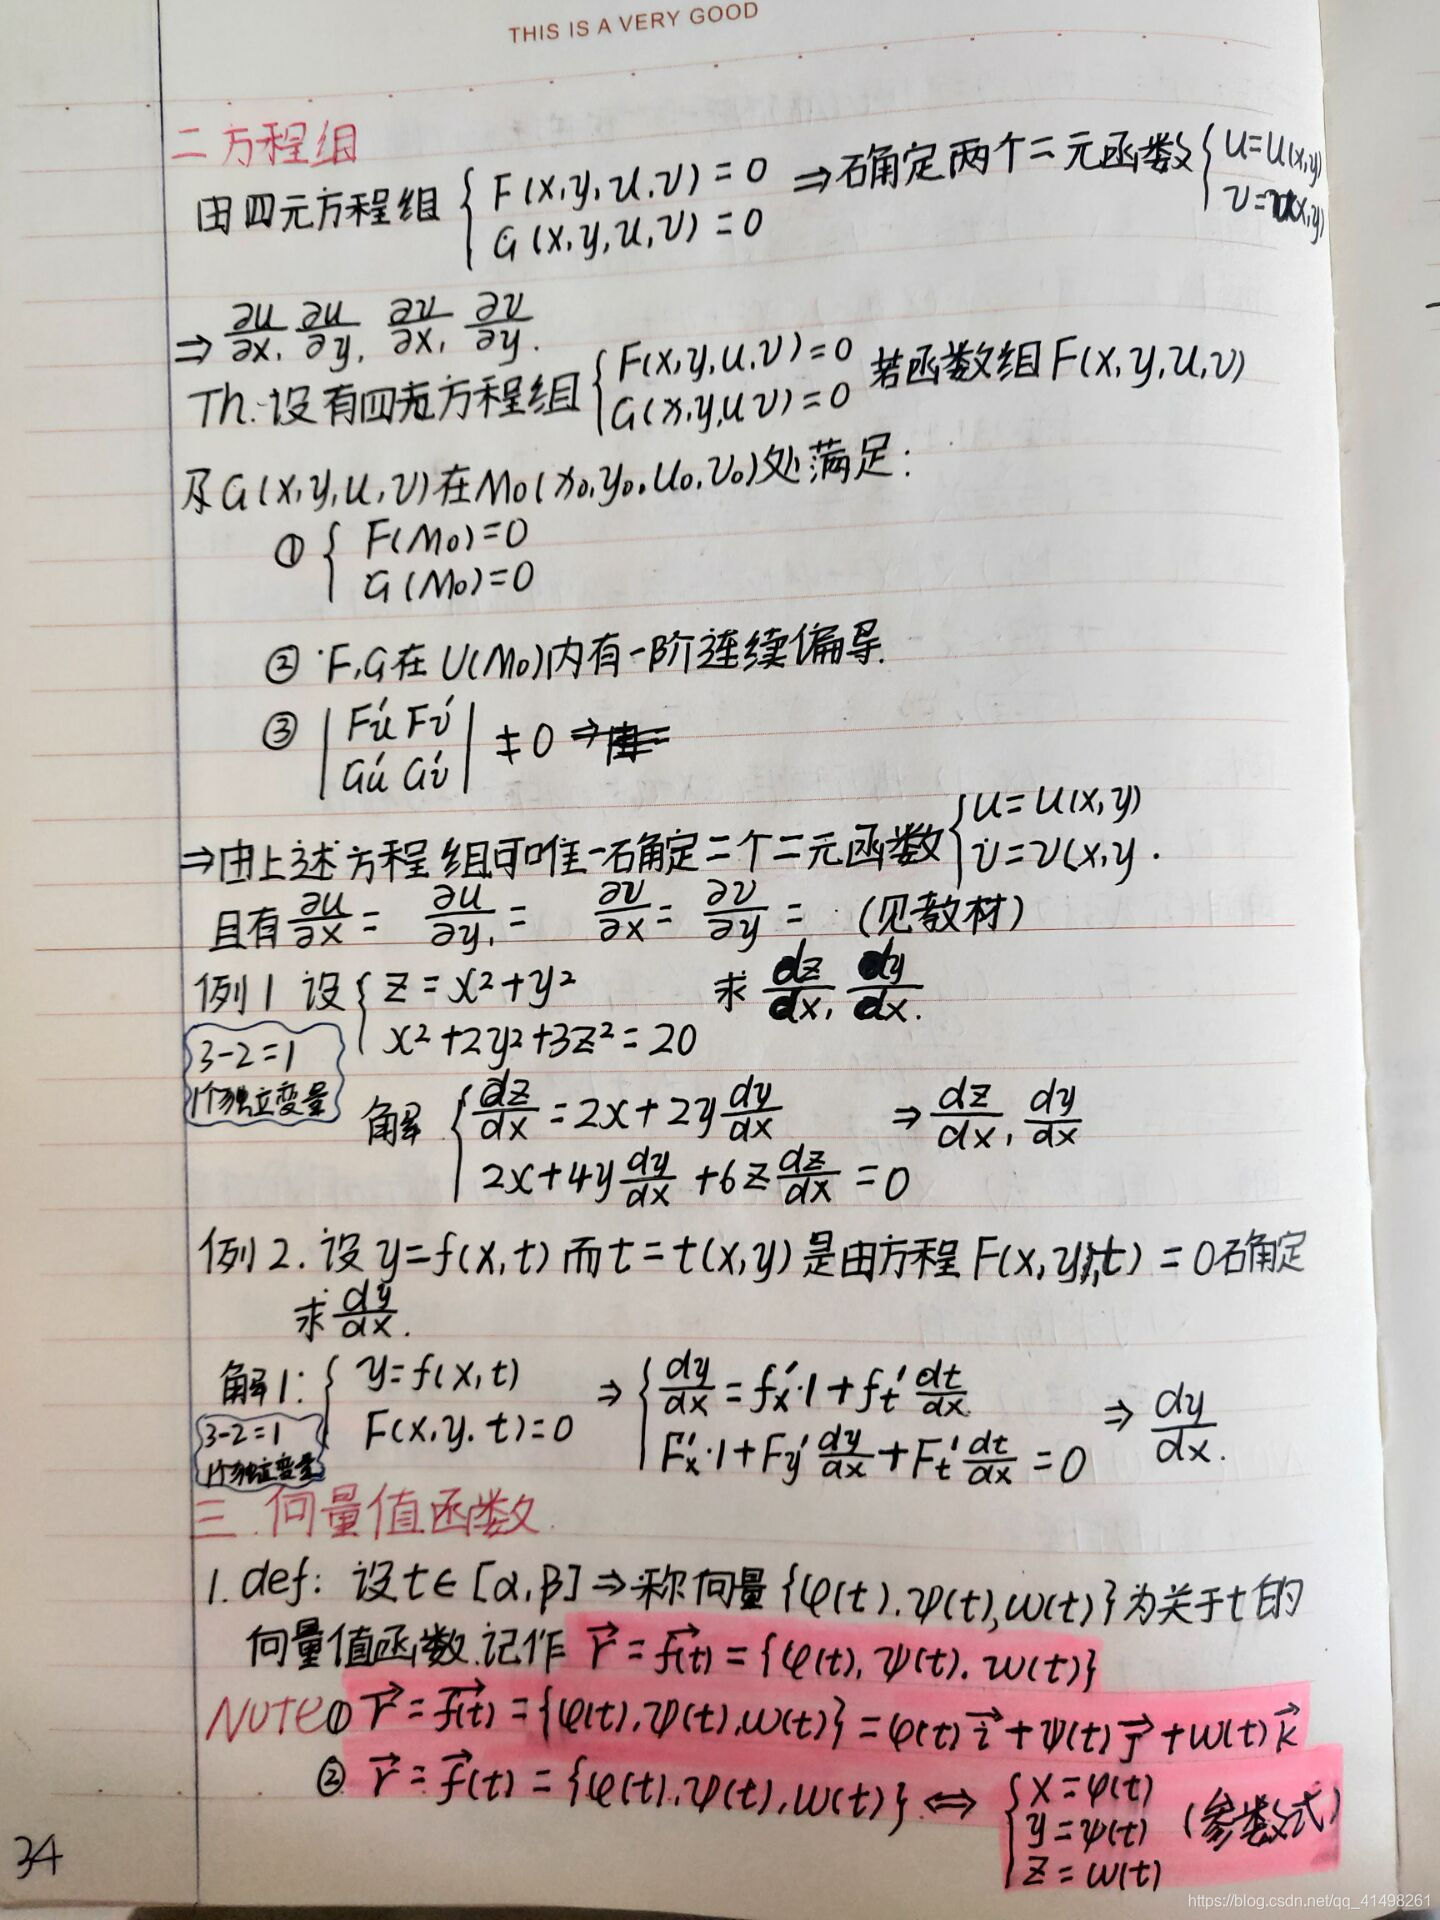 THIS IS A VERY GOOD
二 方程组
由四元方程组 { F(x,y,u,v)=0 G(x,y,u,v)=0 ⇒确定两个二元函数 { u=u(x,y) v=v(x,y)
⇒ ∂u/∂x, ∂u/∂y, ∂v/∂x, ∂v/∂y.
Th.设有四元方程组 { F(x,y,u,v)=0 G(x,y,u,v)=0 若函数组F(x,y,u,v)
及G(x,y,u,v)在M₀(x₀,y₀,u₀,v₀)处满足:
① { F(M₀)=0 G(M₀)=0
② F,G在U(M₀)内有一阶连续偏导.
③ | F'u F'v G'u G'v | ≠0 ⇒
⇒由上述方程组可唯一确定二个二元函数 { u=u(x,y) v=v(x,y.
且有 ∂u/∂x= ∂u/∂y,= ∂v/∂x= ∂v/∂y= (见教材)
例1 设 { z=x²+y² x²+2y²+3z²=20 求 dz/dx, dy/dx.
3-2=1
1个独立变量
解 { dz/dx=2x+2y dy/dx 2x+4y dy/dx+6z dz/dx=0 ⇒ dz/dx, dy/dx
例2.设y=f(x,t)而t=t(x,y)是由方程F(x,y,t)=0确定
求 dy/dx.
解1: { y=f(x,t) F(x,y.t)=0 ⇒ { dy/dx=fx'·1+ft' dt/dx Fx'·1+Fy' dy/dx+Ft' dt/dx=0 ⇒ dy/dx.
3-2=1
1个独立变量
三.向量值函数
1.def: 设t∈[α,β]⇒称向量{φ(t).ψ(t),w(t)}为关于t的
向量值函数.记作 r⃗=f⃗(t)={φ(t),ψ(t).w(t)}
NOTE① r⃗=f⃗(t)={φ(t),ψ(t),w(t)}=φ(t)i⃗+ψ(t)j⃗+w(t)k⃗
② r⃗=f⃗(t)={φ(t),ψ(t),w(t)} ⇔ { x=φ(t) y=ψ(t) z=w(t) (参数式)
34
https://blog.csdn.net/qq_41498261